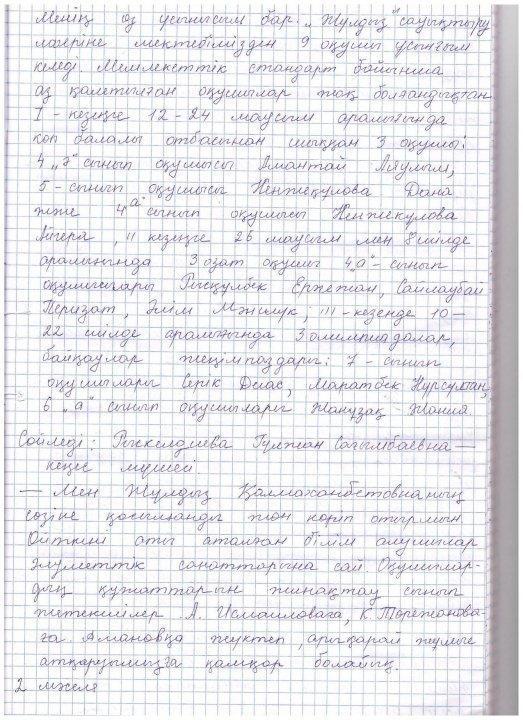 Менің өз ұсынысым бар. „Жұлдыз" сауықтыру
лагеріне мектебімізден 9 оқушы ұсынғым
келеді. Мемлекеттік стандарт бойынша
аз қамтылған оқушылар жоқ болғандықтан
I - кезеңге 12-24 маусым аралығында
көп балалы отбасынан шыққан 3 оқушы:
4 „ә" сынып оқушысы Амантай Аяулым,
5 - сынып оқушысы Кенжеқұлова Дана
және 4„а" сынып оқушысы Кенжекулова
Айгера, II кезеңге 26 маусым мен 8 шілде
аралығында 3 озат оқушы 4„а"- сынып
оқушылары Рысқұлбек Ержехан, Сайлаубай
Перизат, Әлім Мәншук, III - кезеңде 10 -
22 шілде аралығында 3 олимпиадалар,
байқаулар жеңімпаздары: 7 - сынып
оқушылары Серік Диас, Маратбек Нұрсұлтан,
6 „а" сынып оқушылары Жанұзақ Жания
Сөйледі: Рыскелдиева Гүлжан Сағымбаевна —
кеңес мүшесі.
— Мен Жұлдыз Қалмаханбетовнаның
сөзіне қосылғанды жөн көріп отырмын
Өйткені аты аталған білім алушылар
әлуметтік санаттарына сай. Оқушылар-
дың құжаттарын жинақтау сынып
жетекшілер А. Исмаиловаға, К. Төрежанова-
ға. Амановқа жүктеп, арықарай жұмыс
атқаруымызға қамқор болайық.
2 мәселе